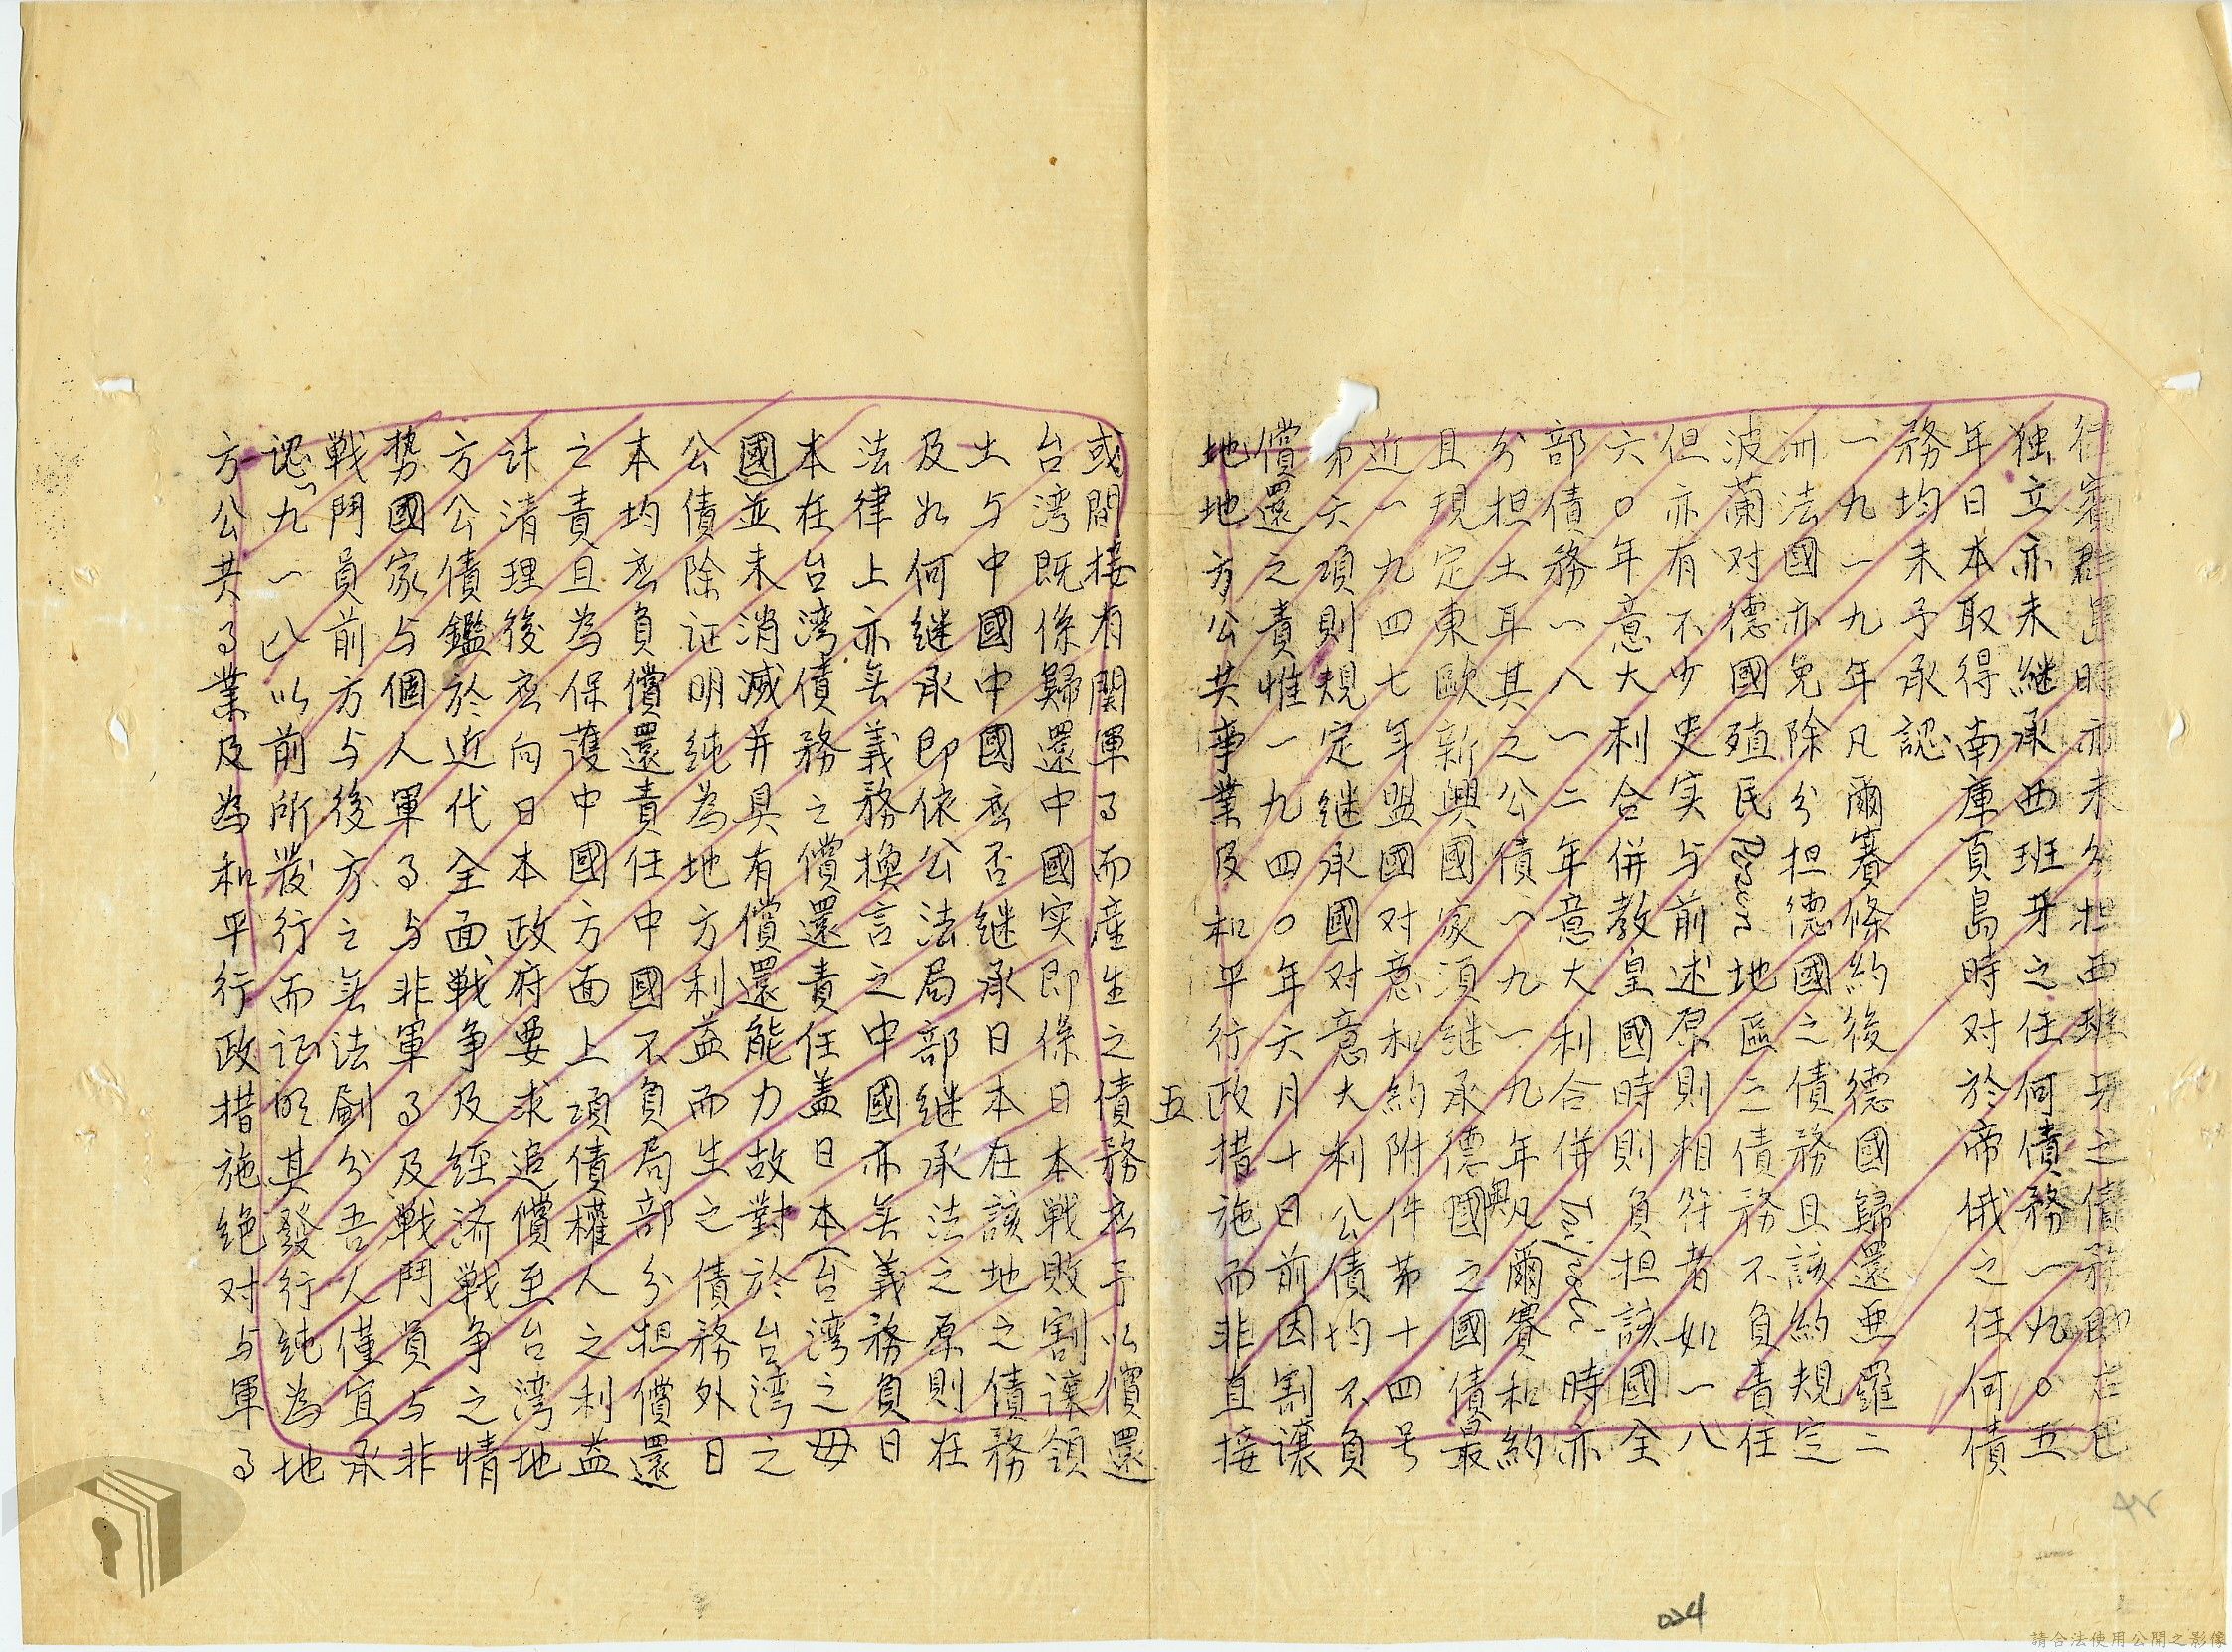 律賓群島時亦未分担西班牙之債務即古巴
独立亦未継承西班牙之任何債務一九〇五
年日本取得南庫頁島時对於帝俄之任何債
務均未予承認
一九一九年凡爾賽條約後德國歸還亜羅二
洲法國亦免除分担德國之債務且該約規定
波蘭对德國殖民Posen地區之債務不負責任
但亦有不少史实与前述原則相符者如一八
六〇年意大利合併教皇國時則負担該國全
部債務一八一二年意大利合併 時亦
分担土耳其之公債一九一九年凡爾賽和約
且規定東歐新興國家須継承德國與 之國債最
近一九四七年盟國对意和約附件第十四号
第六項則規定継承國对意大利公債均不負
償還之責惟一九四〇年六月十日前因割讓
地地方公共事業及和平行政措施而非直接
五
或間接有関軍事而産生之債務应予以償還
台湾既係歸還中國实即係日本戦敗割讓領
土与中國中國应否継承日本在該地之債務
及如何継承即依公法局部継承法之原則在
法律上亦無義務換言之中國亦無義務負日
本在台湾債務之償還責任蓋日本(台湾之毋
國)並未消滅并具有償還能力故對於台湾之
公債除証明純為地方利益而生之債務外日
本均应負償還責任中國不負局部分担償還
之責且為保護中國方面上項債權人之利益
計清理後应向日本政府要求追償至台湾地
方公債鑑於近代全面戦争及経済戦争之情
勢國家与個人軍事与非軍事及戦鬥員与非
戦鬥員前方与後方之無法劃分吾人僅宜承
認九一八以前所發行而証明其發行純為地
方公共事業及為和平行政措施絶对与軍事
024
請合法使用公開之影像